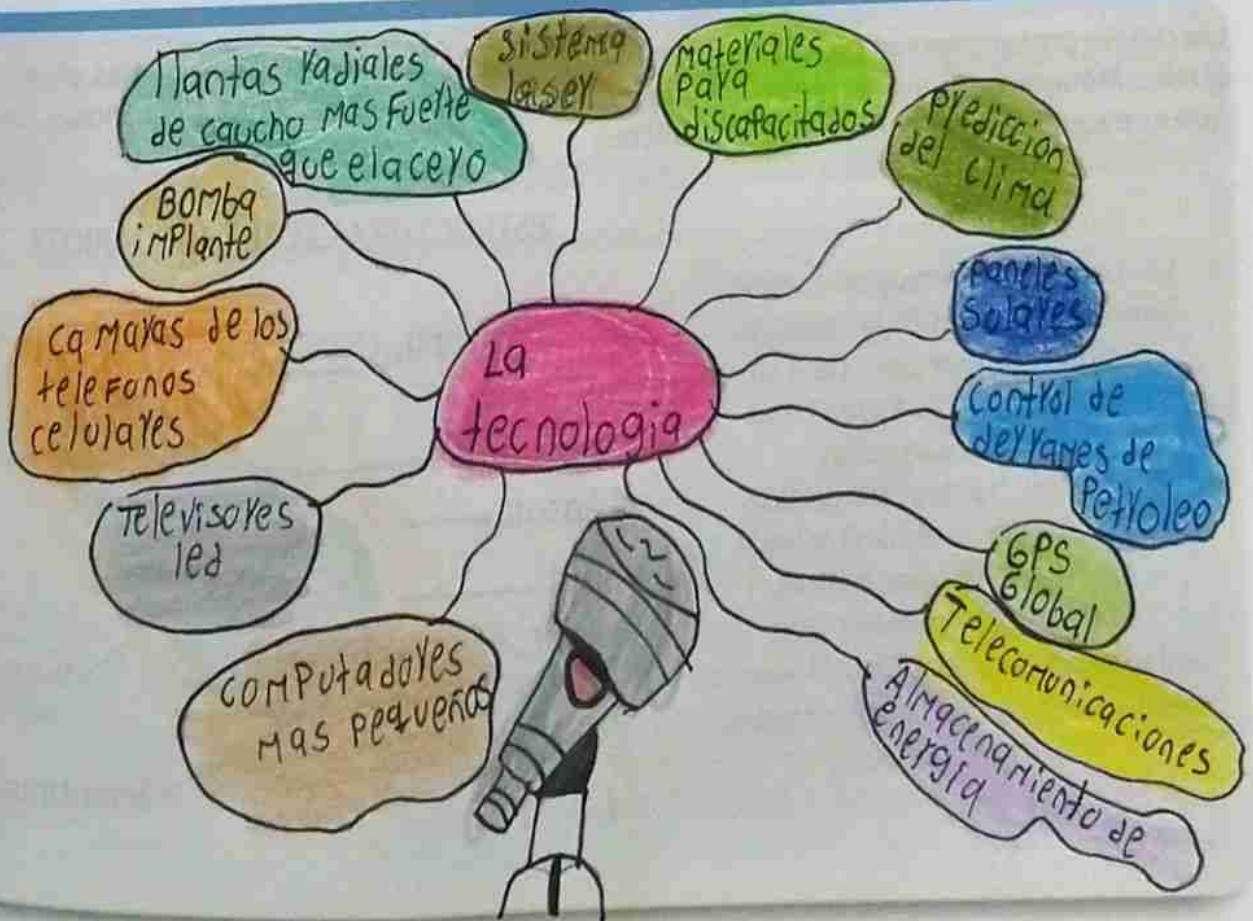 llantas radiales
de caucho mas fuerte
que el acero
sistema
laser
materiales
para
discapacitados
prediccion
del clima
Bomba
implante
paneles
solares
camaras de los
telefonos
celulares
La
tecnologia
control de
derrames de
petroleo
Televisores
led
GPS
Global
Telecomunicaciones
computadores
mas pequeños
Almacenamiento de
energia